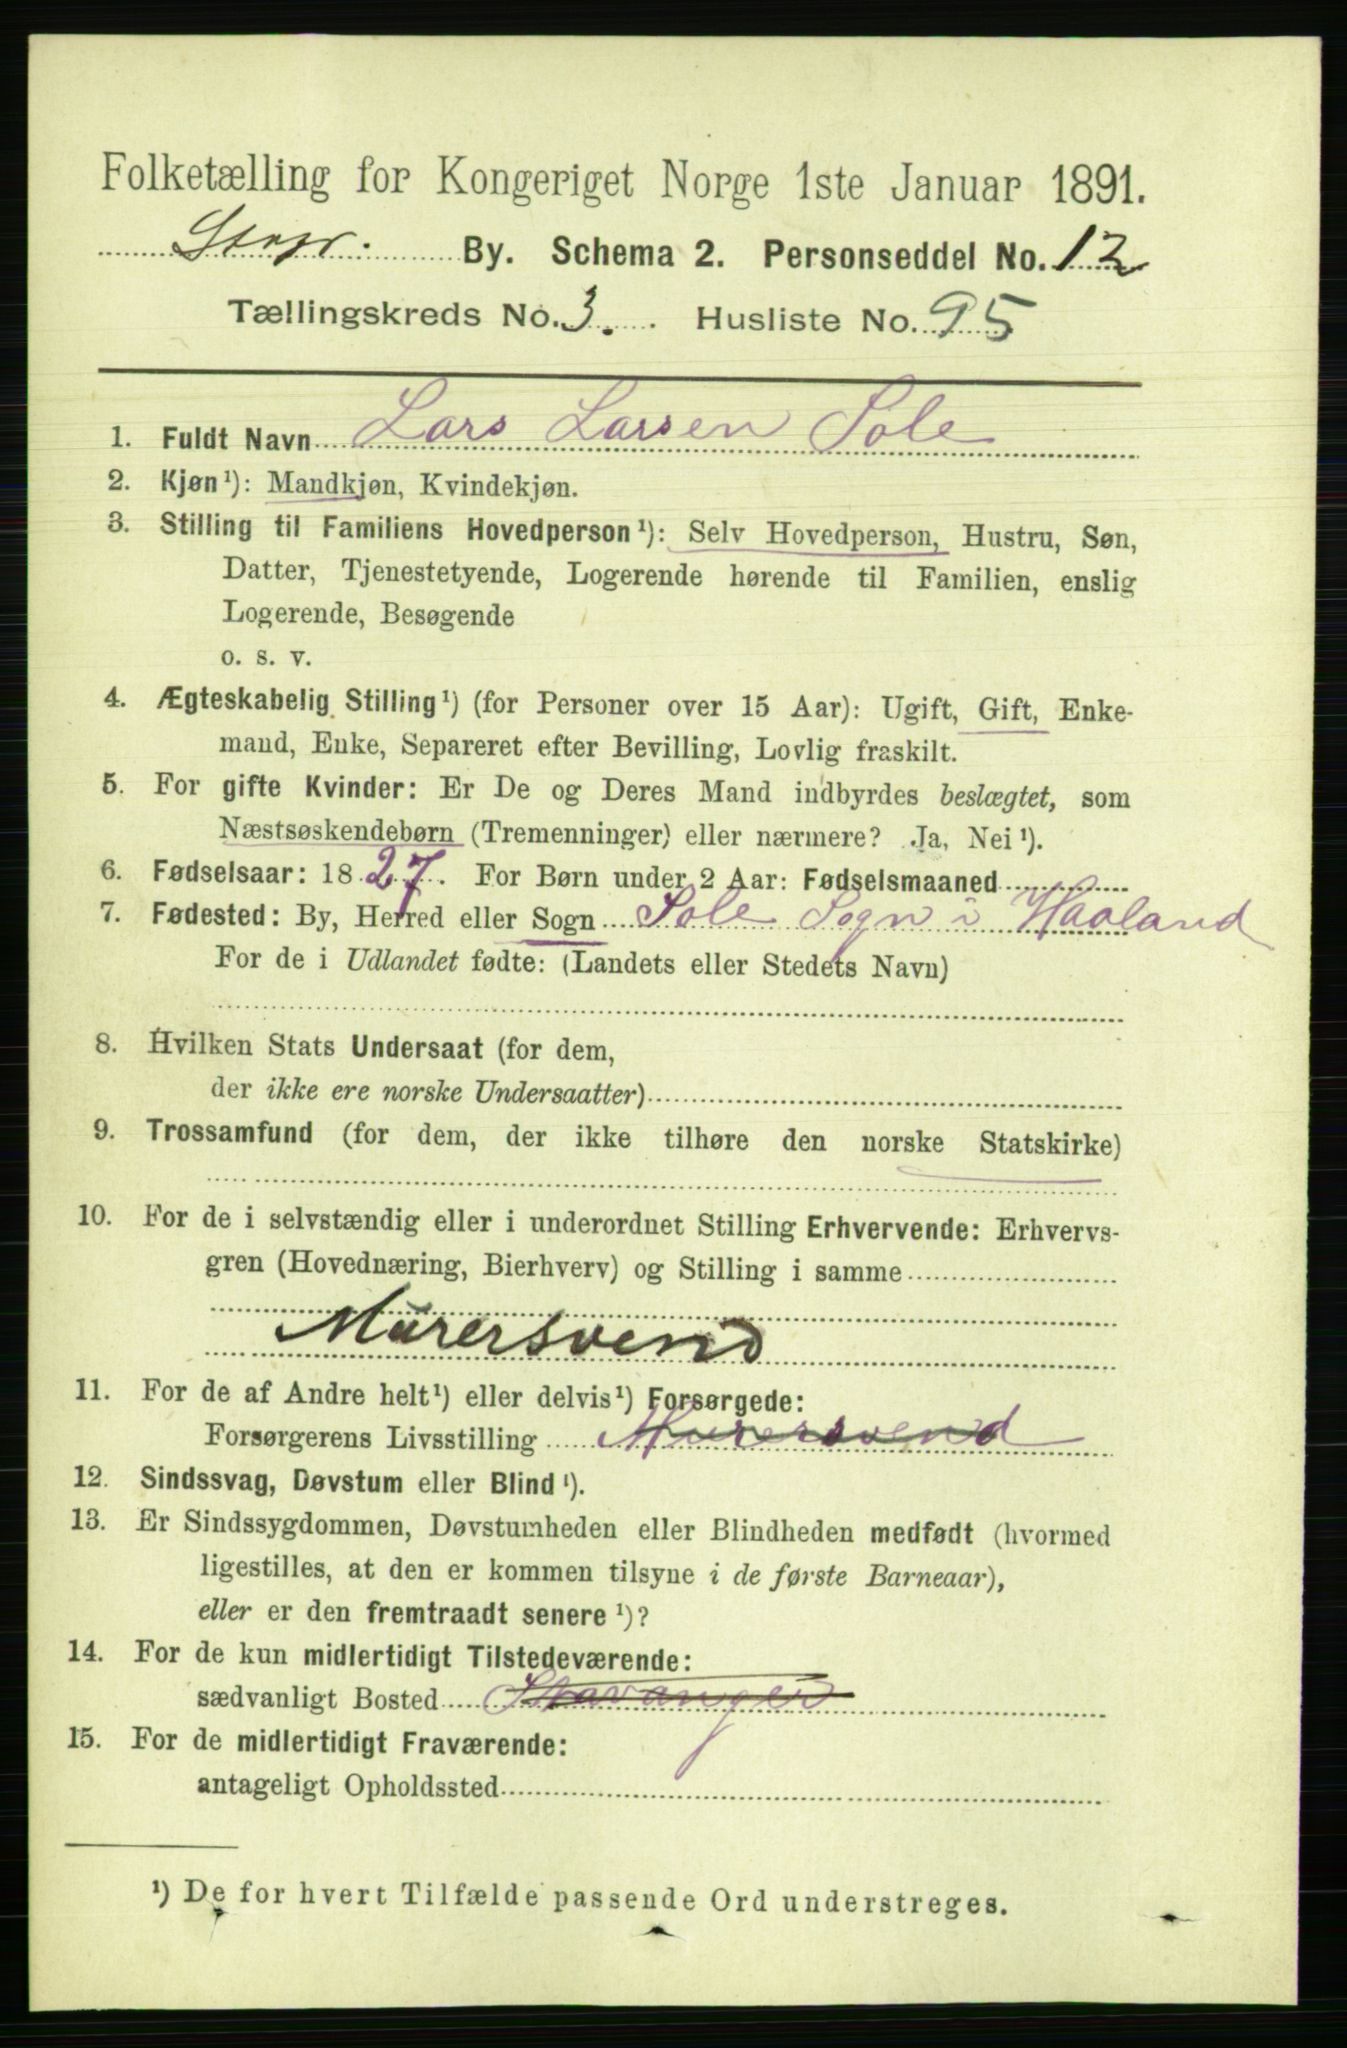 Folketælling for Kongeriget Norge 1ste Januar 1891.
Stvgr. By. Schema 2. Personseddel No. 12
Tællingskreds No. 3. Husliste No. 95
1. Fuldt Navn Lars Larsen Sole
2. Kjøn¹): Mandkjøn, Kvindekjøn.
3. Stilling til Familiens Hovedperson¹): Selv Hovedperson, Hustru, Søn,
Datter, Tjenestetyende, Logerende hørende til Familien, enslig
Logerende, Besøgende
o. s. v.
4. Ægteskabelig Stilling¹) (for Personer over 15 Aar): Ugift, Gift, Enke-
mand, Enke, Separeret efter Bevilling, Lovlig fraskilt.
5. For gifte Kvinder: Er De og Deres Mand indbyrdes beslægtet, som
Næstsøskendebørn (Tremenninger) eller nærmere? Ja, Nei¹).
6. Fødselsaar: 1827. For Børn under 2 Aar: Fødselsmaaned
7. Fødested: By, Herred eller Sogn Sole Sogn i Haaland
For de i Udlandet fødte: (Landets eller Stedets Navn)
8. Hvilken Stats Undersaat (for dem,
der ikke ere norske Undersaatter)
9. Trossamfund (for dem, der ikke tilhøre den norske Statskirke)
10. For de i selvstændig eller i underordnet Stilling Erhvervende: Erhvervs-
gren (Hovednæring, Bierhverv) og Stilling i samme
Murersvend
11. For de af Andre helt¹) eller delvis¹) Forsørgede:
Forsørgerens Livsstilling Murersvend
12. Sindssvag, Døvstum eller Blind¹).
13. Er Sindssygdommen, Døvstumheden eller Blindheden medfødt (hvormed
ligestilles, at den er kommen tilsyne i de første Barneaar),
eller er den fremtraadt senere¹)?
14. For de kun midlertidigt Tilstedeværende:
sædvanligt Bosted Stavanger
15. For de midlertidigt Fraværende:
antageligt Opholdssted
¹) De for hvert Tilfælde passende Ord understreges.